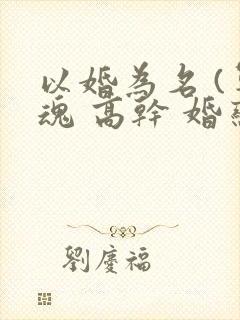 以婚為名(
魂 高幹 婚
劉慶福